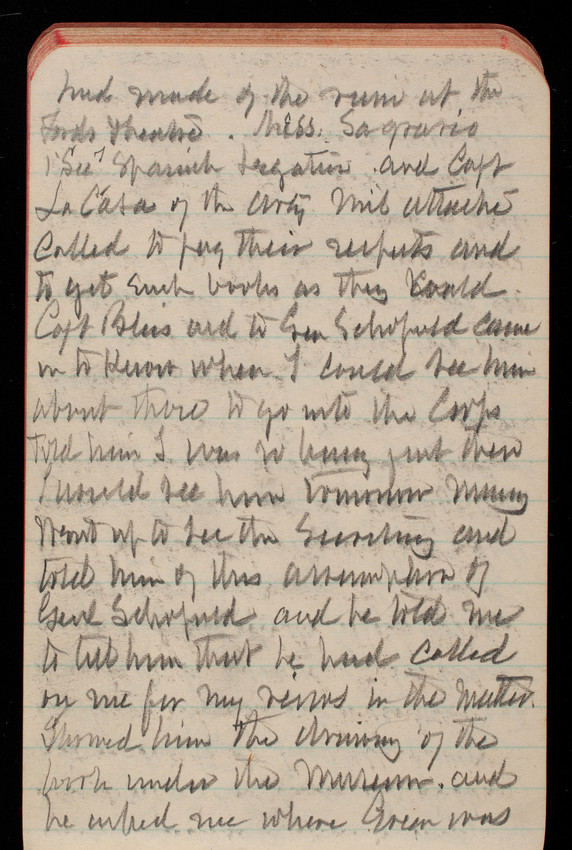 had made of the ruin at the
Fords Theatre. Mess. Sagrario
1 Sec'y Spanish Legation and Capt
La Casa of the army Mil attaché
called to pay their respects and
to get such books as they could.
Capt Bliss aid to Gen Schofield came
in to know when I could see him
about those to go into the Corps
Told him I was so busy just then
I would see him tomorrow
Went up to see the Secretary and
told him of this assumption of
Genl Schofield and he told me
to tell him that he had called
on me for my views in the matter.
Showed him the drawing of the
under the Museum. and
he asked me where Green was